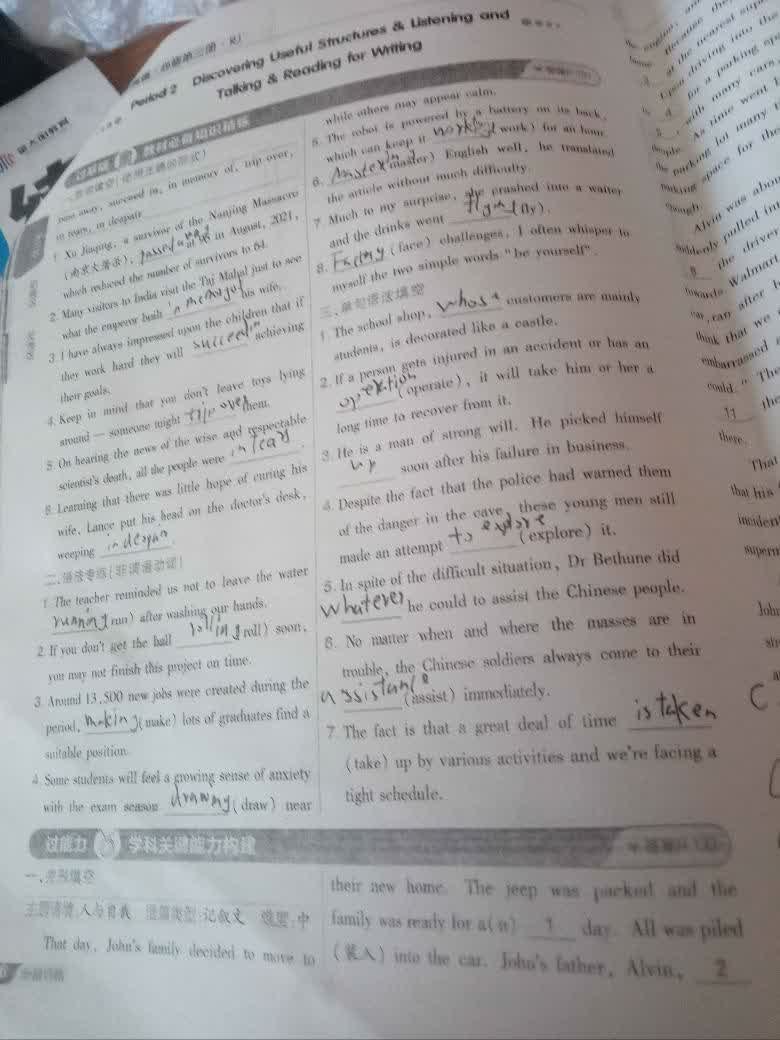 Period 2 Discovering Useful Structures & Listening and
Talking & Reading for Writing
教材必备知识精练
pass away, succeed in, in memory of, trip over,
in tears, in despair
1. Xu Jiaqing, a survivor of the Nanjing Massacre
(南京大屠杀), passed away at 96 in August, 2021,
which reduced the number of survivors to 64.
2. Many visitors to India visit the Taj Mahal just to see
what the emperor built in memory of his wife.
3. I have always impressed upon the children that if
they work hard they will succeed in achieving
their goals.
4. Keep in mind that you don't leave toys lying
around — someone might trip over them.
5. On hearing the news of the wise and respectable
scientist's death, all the people were in tears.
6. Learning that there was little hope of curing his
wife, Lance put his head on the doctor's desk,
weeping in despair
二、语法专练(非谓语动词)
1. The teacher reminded us not to leave the water
running (run) after washing our hands.
2. If you don't get the ball rolling (roll) soon,
you may not finish this project on time.
3. Around 13,500 new jobs were created during the
period, making (make) lots of graduates find a
suitable position.
4. Some students will feel a growing sense of anxiety
with the exam season drawing (draw) near
while others may appear calm.
5. The robot is powered by a battery on its back,
which can keep it working (work) for an hour.
6. (master) English well, he translated
the article without much difficulty.
7. Much to my surprise, she crashed into a waiter
and the drinks went (fly).
8. Facing (face) challenges, I often whisper to
myself the two simple words "be yourself".
三、单句语法填空
1. The school shop, whose customers are mainly
students, is decorated like a castle.
2. If a person gets injured in an accident or has an
(operate), it will take him or her a
long time to recover from it.
3. He is a man of strong will. He picked himself
up soon after his failure in business.
4. Despite the fact that the police had warned them
of the danger in the cave, these young men still
made an attempt to explore (explore) it.
5. In spite of the difficult situation, Dr Bethune did
whatever he could to assist the Chinese people.
6. No matter when and where the masses are in
trouble, the Chinese soldiers always come to their
assistance (assist) immediately.
7. The fact is that a great deal of time is taken
(take) up by various activities and we're facing a
tight schedule.
过能力 学科关键能力构建
一、完形填空
主题语境:人与自我 语篇类型:记叙文 难度:中
That day, John's family decided to move to
their new home. The jeep was packed and the
family was ready for a(n) 1 day. All was piled
(装入) into the car. John's father, Alvin, 2
Alvin was about
suddenly pulled into
8 the driver
towards Walmart
think that we
embarrassed
could." The
11 the
there.
That
that his
incident
John
C